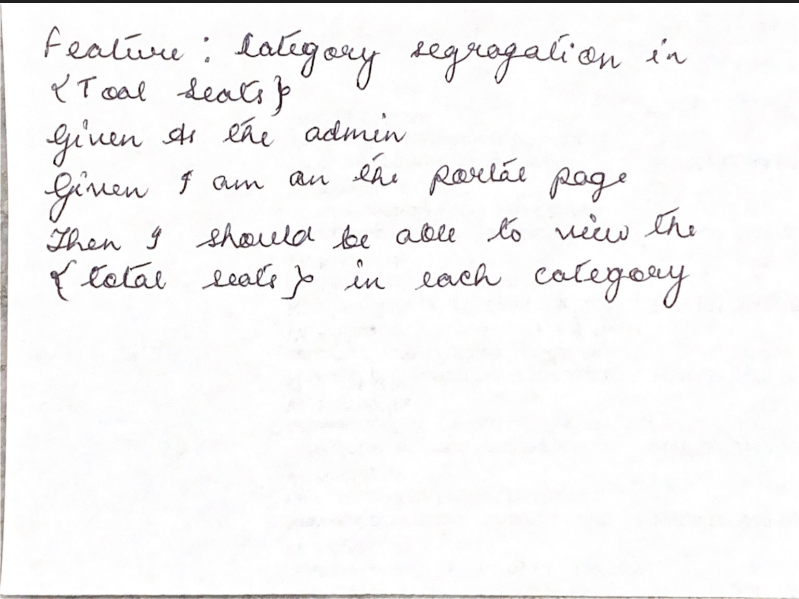 Feature: Category segragation in
{Toal seats}
Given As the admin
Given I am on the portal page
Then I should be able to view the
{total seats} in each category